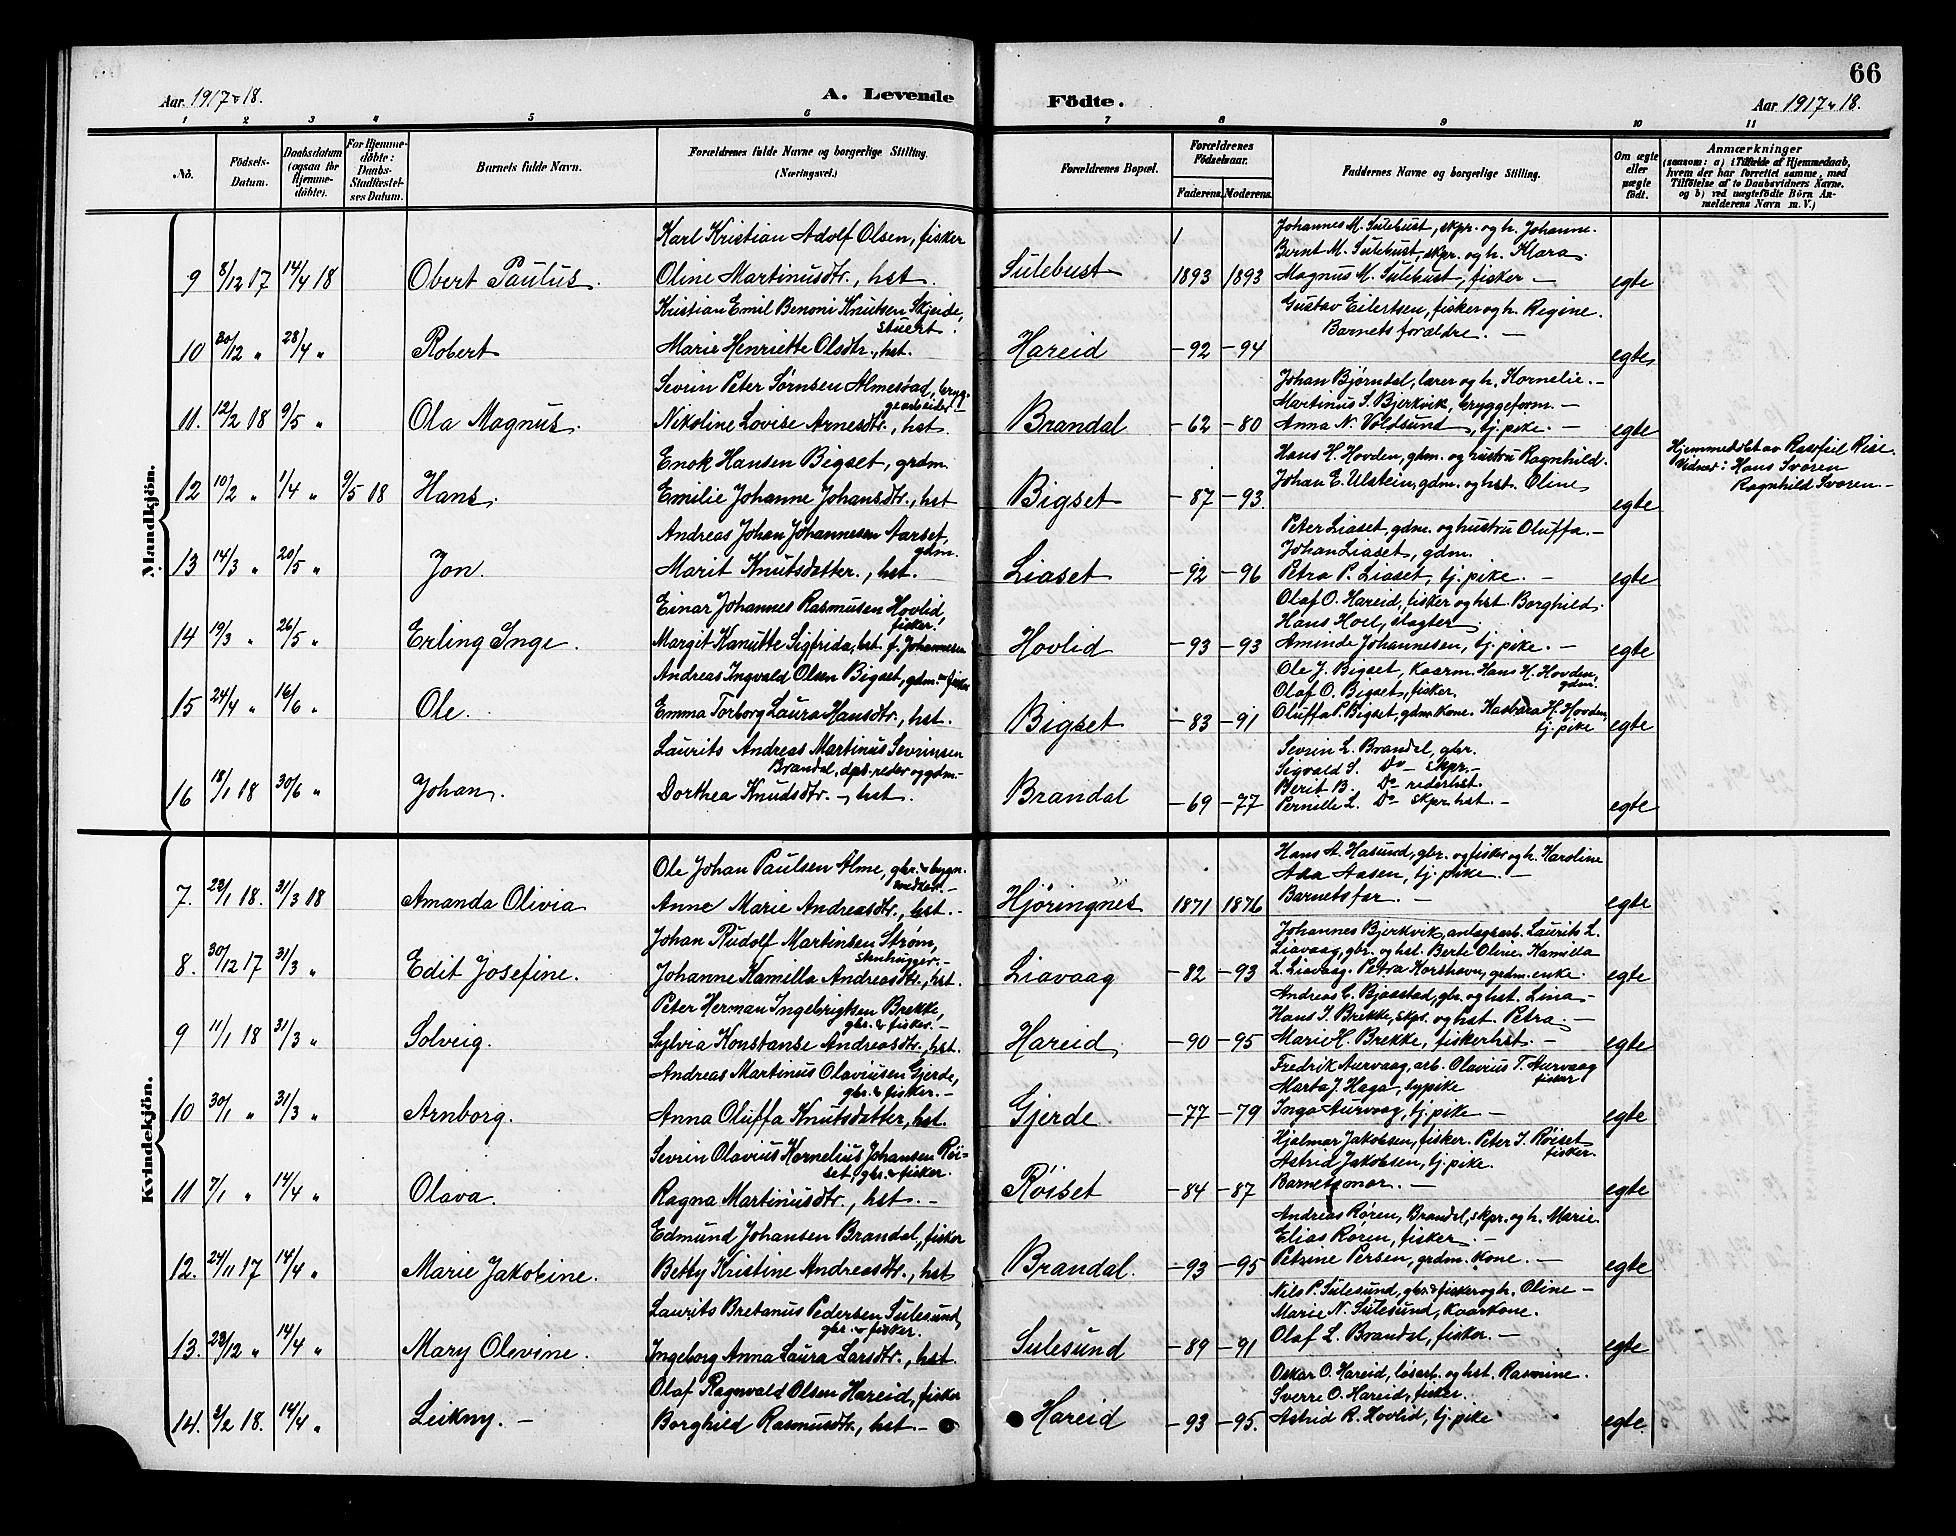 66
Aar. 1917 & 18.
A. Levende
Födte.
Aar 1917 & 18.
1 2 3 4 5 6 7 8 9 10 11
No.
Födsels-
Datum.
Daabsdatum
(ogsaa for
Hjemme-
döbte).
For Hjemme-
döbte:
Daabs-
Stadfæstel-
ses Datum.
Barnets fulde Navn.
Forældrenes fulde Navne og borgerlige Stilling.
(Næringsvei.)
Forældrenes Bopæl.
Forældrenes
Födselsaar.
Faderens. Moderens.
Faddernes Navne og borgerlige Stilling.
Om ægte
eller
uægte
födt.
Anmærkninger
(saasom: a) i Tilfælde af Hjemmedaab,
hvem der har forrettet samme, med
Tilföielse af to Daabsvidners Navne,
og b) ved uægtefödte Börn An-
melderens Navn m. V.)
Mandkjön.
Karl Kristian Adolf Olsen, fisker
Johannes M. Sulebust, skpr. og h. Johanne.
Bernt M. Sulebust, skpr. og h. Klara.
9 8/12 17 14/4 18 Obert Paulus. Oline Martinusdtr., hst. Sulebust 1893 1893 Magnus M. Sulebust, fisker — egte
Kristian Emil Benoni Knutsen Skjeide,
stuert.
Gustav Eilertsen, fisker og h. Regine.
Barnets forældre. —
10 20/12 " 28/4 " Robert Marie Henriette Olsdtr., hst. Hareid -92 -94 egte
Sevrin Peter Sørnsen Almestad, bryg-
gearbeider —
Johan Bjørndal, lærer og h. Kornelie. —
Martinus S. Bjerkvik, bryggeform. —
11. 12/2 18 9/5 " Ola Magnus. Nikoline Lovise Arnesdtr., hst. Brandal -62 -80 Anna N. Voldsund, tj. pike. — egte
Enok Hansen Bigset, grdm.
Hans H. Hovden, gdm. og hustru Ragnhild.
Hjemmedøbt av Rasfeil Rise.
Vidner: Hans Svoren
Ragnhild Svoren. —
12 10/2 " 1/4 " 9/5 18 Hans. Emilie Johanne Johansdtr., hst Bigset -87 -93. Johan E. Ulstein, gdm. og hst. Oline egte
Andreas Johan Johannesen Aarset,
gdm.
Peter Liaset, gdm. og hustru Oluffa. —
Johan Liaset, gdm.
13 14/3 " 20/5 " Jon. Marit Knutsdatter., hst. Liaset -92 -96 Petra P. Liaset, tj. pike. — egte
Einar Johannes Rasmusen Hovlid,
fisker.
Olaf O. Hareid, fisker og hst. Borghild.
Hans Hoel, slagter.
14 19/3 " 26/5 " Erling Inge. Margit Kanutte Sigfrida, hst. f. Johannesen Hovlid -93 -93 Aminde Johannesen, tj. pike. — egte
Andreas Ingvald Olsen Bigset, gdm. & fisker
Ole J. Bigset, kaarm. Hans H. Hovden,
gdm.
Olaf O. Bigset, fisker.
15 24/4 " 16/6 " Ole. Emma Torborg Laura Hansdtr., hst. Bigset -83 -91 Oluffa P. Bigset, gdm. kone. Kasbara H. Hovden,
tj. pike egte
Laurits Andreas Martinus Sevrinsen
Brandal, dpb. reder og gdm. —
Sevrin L. Brandal, gbr.
Sigvald S. Do — skpr. —
Berit B. Do — rederhst.
16 18/1 18 30/6 " Johan. Dorthea Knudsdtr. —, hst. Brandal -69 -77 Pernille L. Do — skpr. hst. — egte
Kvindekjön.
Ole Johan Paulsen Alme, gbr. & bygn.
Hans A. Hasund, gbr. og fisker og h. Karoline
Ada Aasen, tj. pike. —
7. 23/1 18. 31/3 18 Amanda Olivia Anne Marie Andreasdtr., hst. — Hjøringnes 1871 1876 Barnets far. — egte
Johan Rudolf Martinsen Strøm,
stenhugger. —
Johannes Bjerkvik, anlægsarb. Laurits L.
Liavaag, gbr. og hst. Berte Oline. Kamilla
8. 30/12 17 31/3 " Edit Josefine. Johanne Kamilla Andreasdtr., hst. Liavaag -82 -93 L. Liavaag. Petra Korshavn, grdm. enke. egte
Peter Herman Ingebrigtsen Brekke,
gbr. & fisker. —
Andreas E. Bjaastad, gbr. og hst. Lina —
Hans I. Brekke, skpr. og hst. Petra. —
9 11/1 18 31/3 " Solveig. Sylvia Konstanse Andreasdtr., hst. Hareid. -90 -95 Marie H. Brekke, fiskerhst. — egte
Andreas Martinus Olaviusen Gjerde,
gbr. & fisker. —
Fredrik Aurvaag, arb. Olavius T. Aurvaag
fisker
Marta J. Haga, bypike
10 30/1 " 31/3 " Arnborg. Anna Oluffa Knutsdatter, hst. Gjerde -77 -79 Inga Aurvaag, tj. pike — egte
Sevrin Olavius Kornelius Johansen Røi-
set, gbr. & fisker.
Hjalmar Jakobsen, fisker. Peter I. Røiset
fisker.
Astrid Jakobsen, tj. pike.
11 7/1 " 14/4 " Olava. Ragna Martinusdtr., hst. — Røiset -84 -87 Barnets mor. — egte
Edmund Johansen Brandal, fisker
Andreas Røren, Brandal, skpr. og h. Marie.
Elias Røren, fisker. —
12. 24/11 17 14/4 " Marie Jakobine. Betty Kristine Andreasdtr., hst Brandal. -93 -95 Petrine Persen, grdm. kone. — egte
Laurits Bretanus Pedersen Sulesund,
gbr. & fisker.
Nils P. Sulesund, gbr. & fisker og h. Oline —
Marie N. Sulesund, kaarkone.
13. 23/12 " 14/4 " Mary Olevine. Ingeborg Anna Laura Larsdtr., hst Sulesund -89 -91 Olaf L. Brandal, fisker. — egte
Olaf Ragnvald Olsen Hareid, fisker
Oskar O. Hareid, løsarb. og hst. Rasmine.
Sverre O. Hareid, fisker.
14. 2/2 18. 14/4 " Leikny. — Borghild Rasmusdtr., hst — Hareid -93 -95. Astrid R. Hovlid, tj. pike egte.